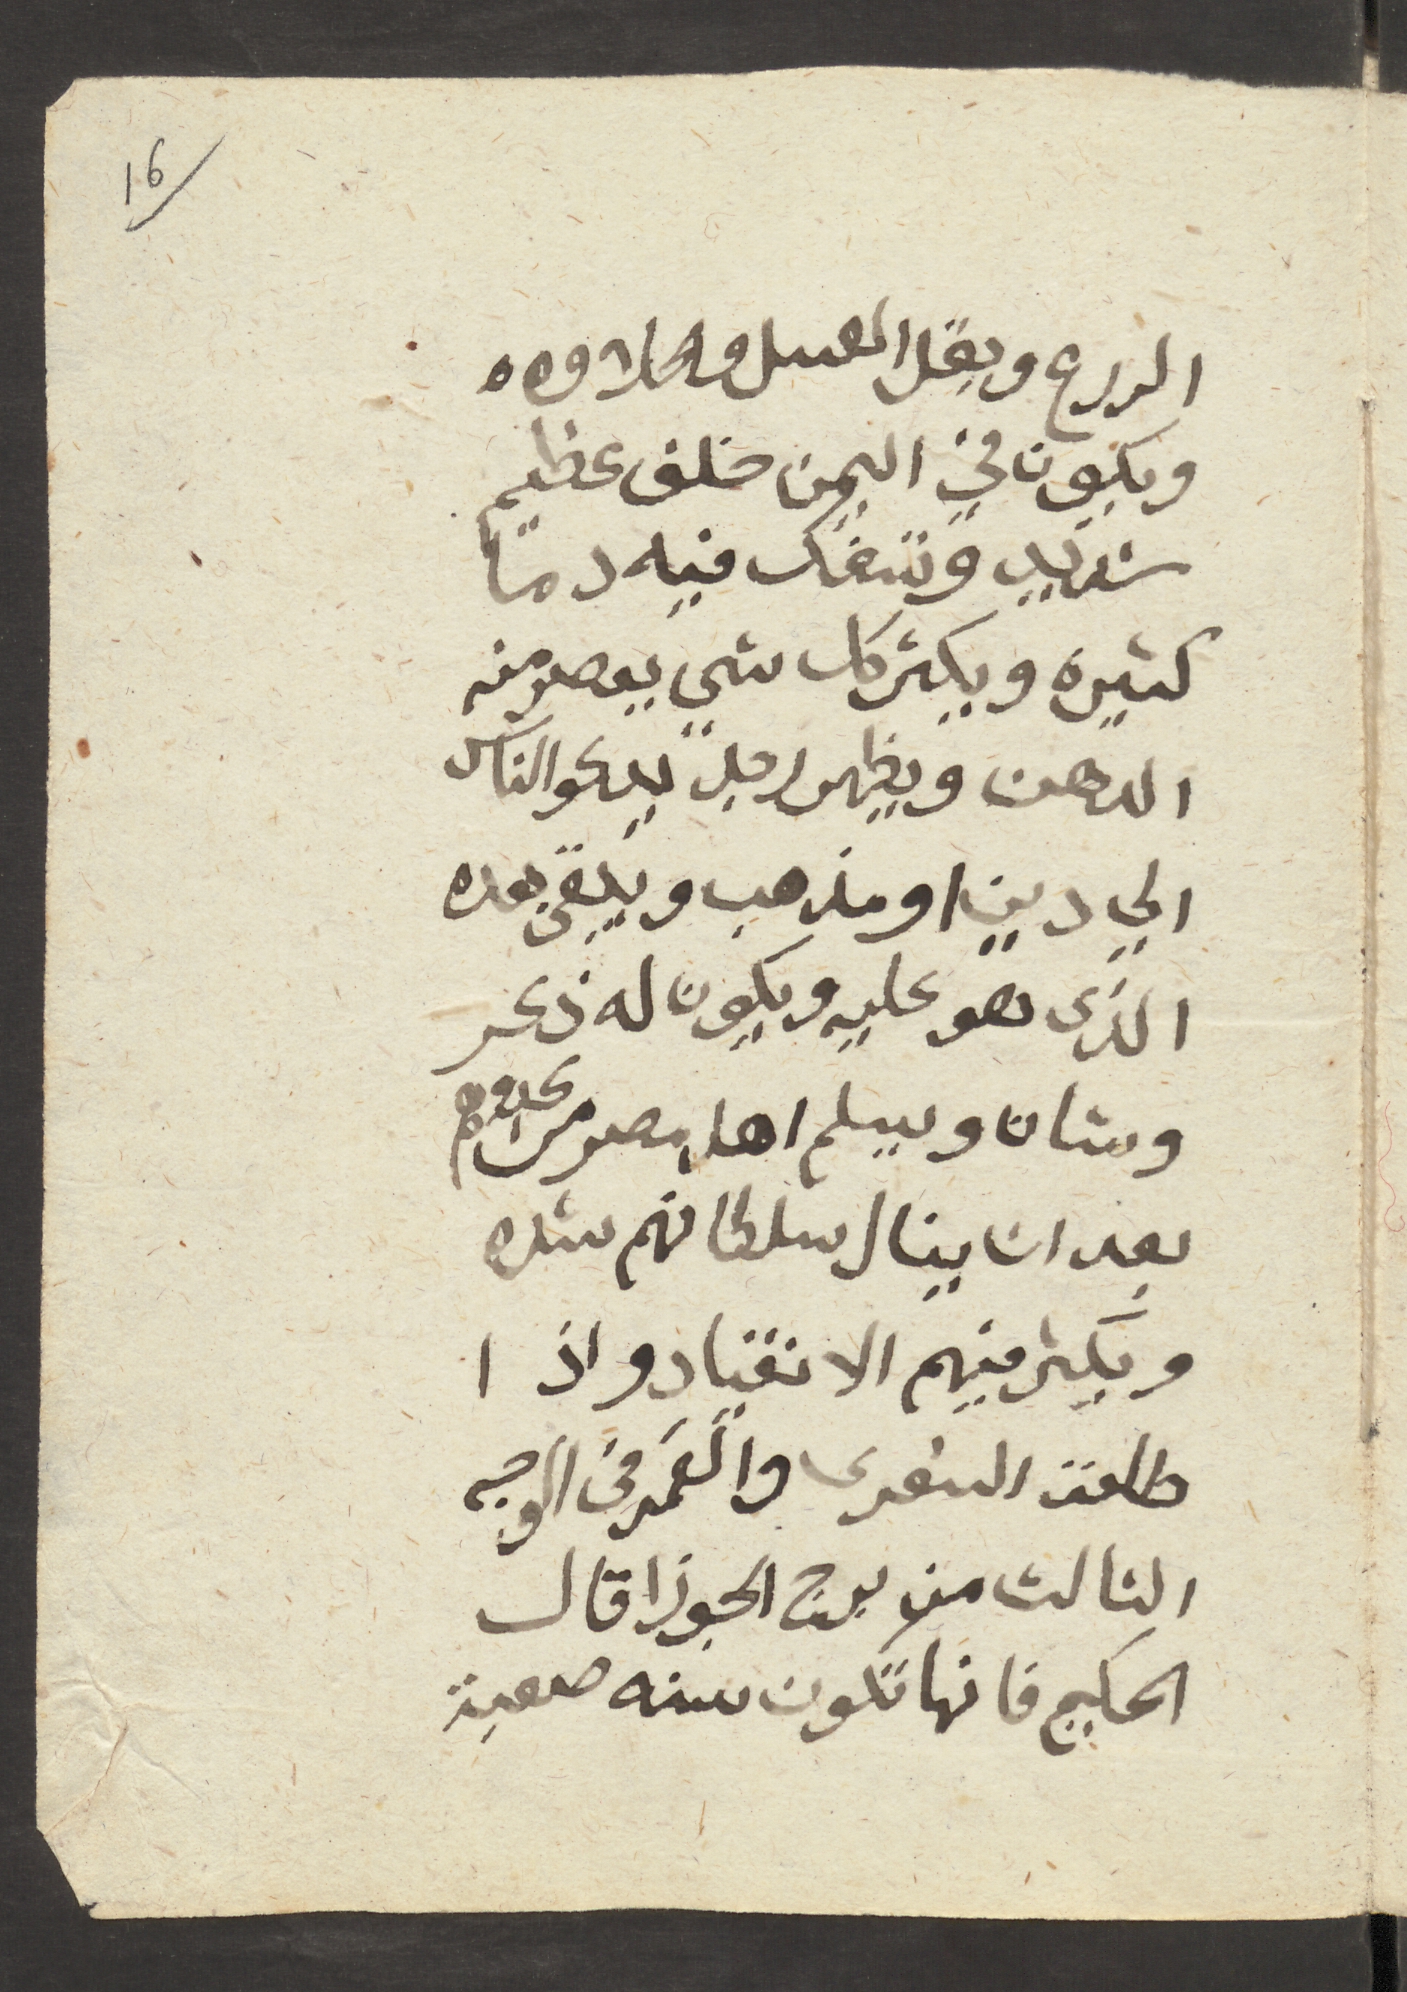 16
الزرع ويقل العسل والحلاوه ه
ويكون في اليمن خلف عظيم
شديد وتسفك فيه دما
كثيره ويكثر كل شي يعصر منه
الدهن ويظهر رجل يدعو الناس
الي دين او مذهب ويلقي بعده
الذي هو عليه ويكون له ذكر
وشان ويسلم اهل مصر من عدوهم
بعد ان ينال سلطانهم شده
ويكثر فيهم الانقياد واذ ا
طلعت الشعرى والقمر في الوجه
الثالث من برج الجوزا قال
الحكيم فانها تكون سنه صعبة